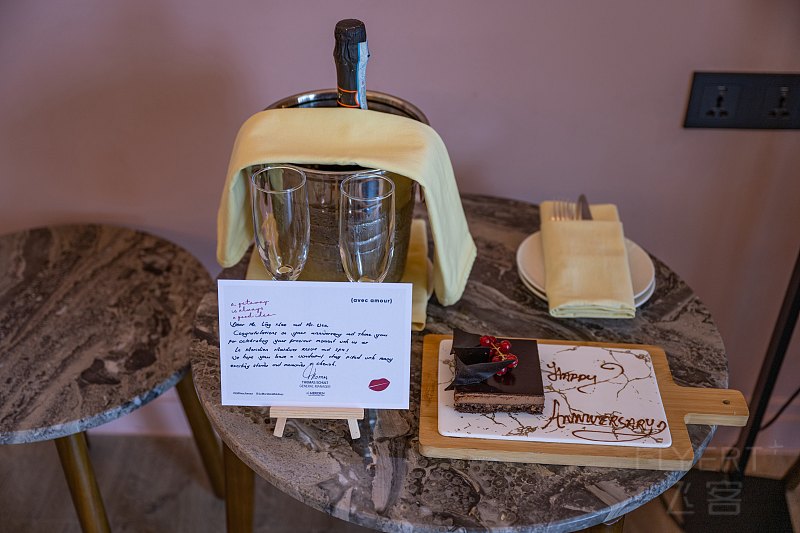 a getaway
is always
a good idea
(avec amour)
Congratulations on your anniversary and thank you
for celebrating your precious moment with us at
Le Meridien Maldives Resort and Spa!
We hope you have a wonderful stay filled with many
exciting stories and memories to cherish.
THOMAS SCHULT
GENERAL MANAGER
LE MERIDIEN
HAPPY
ANNIVERSARY
FLYERT
飞客